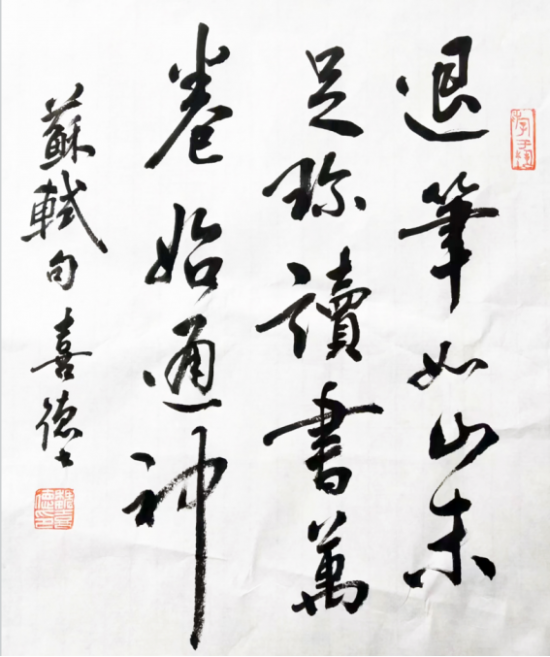 退筆如山未
足珎讀書萬
卷始通神
蘇軾句 喜德书